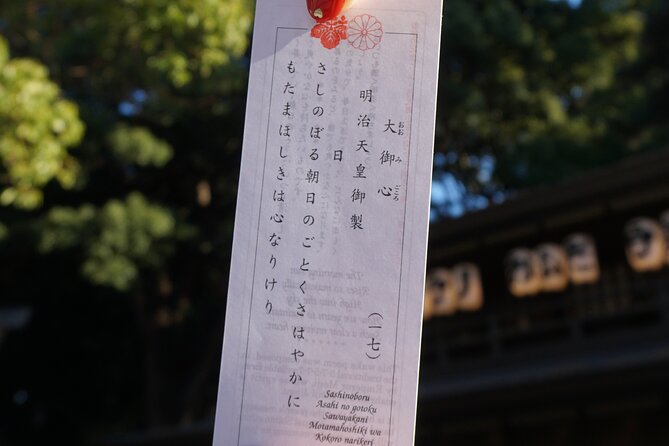 大御心
おおみごころ
明治天皇御製
(一七)
日
さしのぼる朝日のごとくさはやかに
もたまほしきは心なりけり
Sashinoboru
Asahi no gotoku
Sawayakani
Motamahoshiki wa
Kokoro narikeri